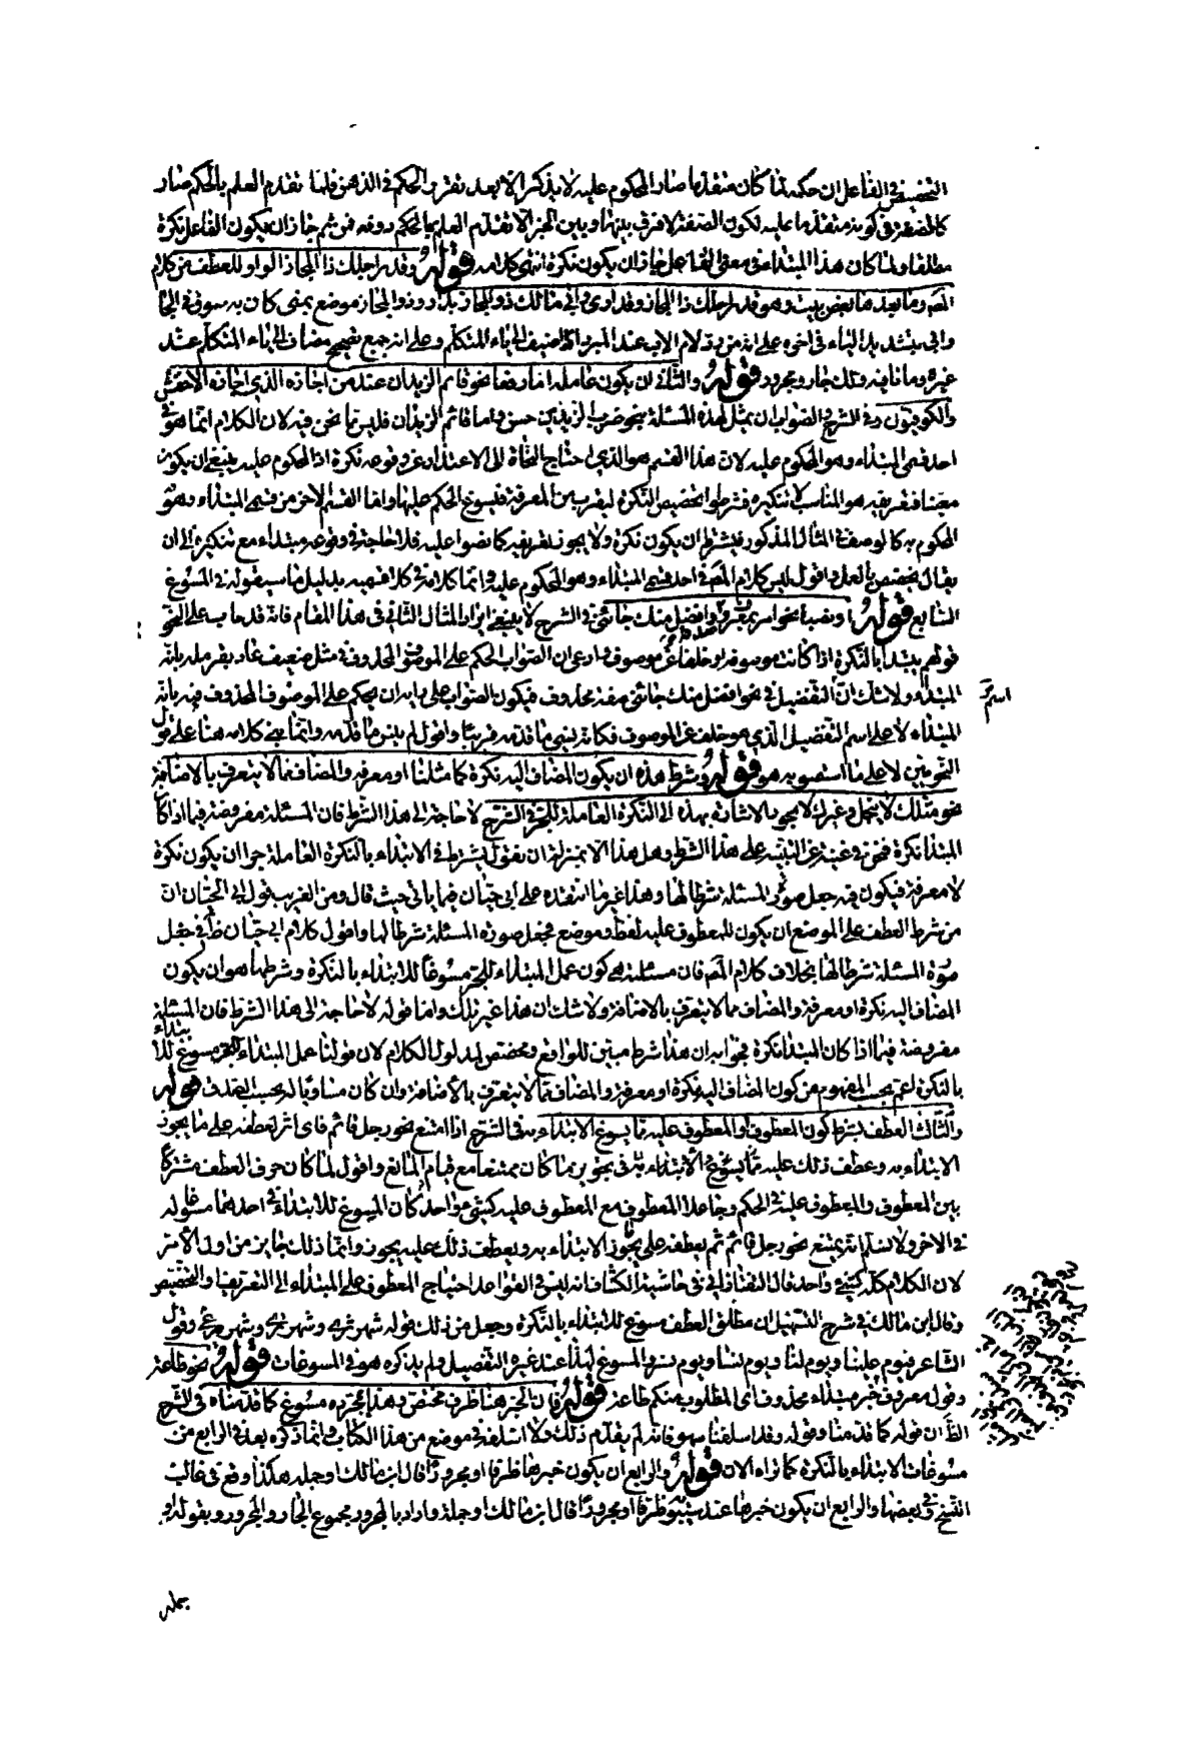 التخصيص في الفاعل ان حكمه لما كان متقدما صار المحكوم عليه لا يذكر الا بعد تقرر الحكم في الذهن فلما تقدم العلم بالحكم صار
كالصفة في كونه متقدما عليه لكون الصفة لا فرق بينها وبين الخبر الا تقدم العلم بالحكم دونه فمن ثم جاز ان يكون الفاعل نكرة
مطلقا ولما كان هذا المبتدا في معنى الفاعل جاز ان يكون نكرة انتهى كلامه قوله وقدر احلك ذا المجاز الواو للعطف من كلام
المص وما بعدها بعض بيت وهو قدر احلك ذا المجاز وقد ارى وابي مالك ذو المجاز بدار وذو المجاز موضع بمنى كان به سوق في الجا
وابي بتشديد الياء في اخره على انه من رد لام الاب عند المبرد لما اضيف الى ياء المتكلم وعلى انه جمع تصحيح مضاف الى ياء المتكلم عند
غيره وما نافية ولك جار ومجرور قوله والثاني ان يكون عاملة اما رفعا نحو قائم الزيدان عند من اجازه الذي اجازه الاخفش
والكوفيون وفي الشرح والصواب ان يمثل لهذه المسئلة بنحو ضرب الزيدين حسن واما قائم الزيدان فليس مما نحن فيه لان الكلام انما هو في
احد قسمي المبتداء وهو المحكوم عليه لان هذا القسم هو الذي احتاج النحاة الى الاعتذار عن وقوعه نكرة اذ المحكوم عليه ينبغي ان يكون
معينا فتعريفه هو المناسب لا تنكيره فشرطوا تخصيص النكرة ليقرب من المعرفة فيسوغ الحكم عليها واما القسم الاخر من قسمي المبتداء وهو
المحكوم به كالوصف في المثال المذكور فيشترط ان يكون نكرة ولا يجوز تعريفه كما نصوا عليه فلا حاجة في وقوعه مبتداء مع تنكيره الى ان
يقال تخصص بالعمل واقول ليس كلام المص في احد قسمي المبتداء وهو المحكوم عليه وانما كلامه في كلا قسميه بدليل ما سيقوله في المسوغ
السابع قوله او نصبا نحو امر بمعروف وافضل منك جاءني في الشرح لا ينبغي ايراد المثال الثاني في هذا المقام فانه قد عاب على النحو
قولهم يبتدا بالنكرة اذا كانت موصوفة او خلفا عن موصوف وادعى ان الصواب الحكم على الموصوف المحذوف في مثل ضعيف عاذ بقرملة بانه
المبتداء ولا شك ان التفضيل في نحو افضل منك جاءني صفة محذوف فيكون الصواب على رايه ان يحكم على الموصوف المحذوف فيه بانه
اسم
المبتداء لا على اسم التفضيل الذي هو خلف عن الموصوف فكانه نسي ما قدمه قريبا واقول لم ينس ما قدمه وانما بنى كلامه هنا على قول
النحويين لا على ما استصوبه هو قوله وشرط هذه ان يكون المضاف اليه نكرة كما مثلنا او معرفة والمضاف مما لا يتعرف بالاضافة
نحو مثلك لا يبخل وغيرك لا يجود الاشارة بهذه الى النكرة العاملة للجر في الشرح لا حاجة الى هذا الشرط فان المسئلة مفروضة فيما اذا كان
المبتدا نكرة فنحن في غنية عن التنبيه على هذا الشرط وهل هذا الا بمنزلة ان يقول يشترط في الابتداء بالنكرة العاملة جوا ان يكون نكرة
لا معرفة فيكون فيه جعل صورة المسئلة شرطا لها وهذا غير ما انتقده على ابي حيان فيما ياتي حيث قال ومن الغريب قول ابي الحيان ان
من شرط العطف على الموضع ان يكون للمعطوف عليه لفظ وموضع فجعل صورة المسئلة شرطا لها واقول كلام ابي حيان ظ في جعل
صورة المسئلة شرطا لها بخلاف كلام المص فان مسئلته هي كون عمل المبتداء للجر مسوغا للابتداء بالنكرة وشرطها هو ان يكون
المضاف اليه نكرة او معرفة والمضاف مما لا يتعرف بالاضافة ولا شك ان هذا غير تلك واما قوله لا حاجة الى هذا الشرط فان المسئلة
مفروضة فيما اذا كان المبتدا نكرة فجوابه ان هذا شرط مبين للواقع ومخصص لمدلول الكلام لان قولنا عمل المبتداء الجر مسوغ للابتداء
بالنكرة اعم بحسب المفهوم من كون المضاف اليه نكرة او معرفة والمضاف مما لا يتعرف بالاضافة وان كان مساويا له بحسب الصدق قوله
والثالث العطف بشرط كون المعطوف او المعطوف عليه مما يسوغ الابتداء به في الشرح اذا امتنع نحو رجل قائم فاي اثر لعطفه على ما يجوز
الابتداء به وعطف ذلك عليه مما يسوغ الابتداء به في تجويز ما كان ممتنعا مع قيام المانع واقول لما كان حرف العطف مشركا
بين المعطوف والمعطوف عليه في الحكم وجاعلا المعطوف مع المعطوف عليه كشيء واحد كان المسوغ للابتداء في احدهما مسوغا له
في الاخر ولا نسلم انه يمتنع نحو رجل قائم ثم بعطفه على ما يجوز الابتداء به وبعطف ذلك عليه يجوز وانما ذلك جايز من اول الامر
لان الكلام كله كشيء واحد قال التفتازاني في حاشية الكشاف انه ليس في القواعد احتياج المعطوف على المبتداء الى التعريف او التخصيص
وقال ابن مالك في شرح التسهيل ان مطلق العطف مسوغ للابتداء بالنكرة وجعل من ذلك قوله شهر ثرى وشهر ترى وشهر مرعى وقول
الشاعر فيوم علينا ويوم لنا ويوم نساء ويوم نسر والمسوغ لهذا عند غيره التفصيل ولم يذكره هو في المسوغات قوله نحو طاعة
وقول معروف خبر مبتداء محذوف اي المطلوب منكم طاعة قوله فان الخبر هنا ظرف مختص وهذا بمجرده مسوغ كما قدمناه في الشرح
الظ ان قوله كما قدمنا وقوله وقد اسلفنا سهو فانه لم يتقدم ذلك ولا اسلفه في موضع من هذا الكتاب وانما ذكره بعد في الرابع من
مسوغات الابتداء بالنكرة كما تراه الان قوله والرابع ان يكون خبرها ظرفا او مجرورا قال ابن مالك او جملة هكذا وقع في غالب
النسخ في بعضها والرابع ان يكون خبرها عند سيبويه ظرفا او مجرورا قال ابن مالك او جملة واراد بالمجرور مجموع الجار والمجرور وبقوله او
جملة